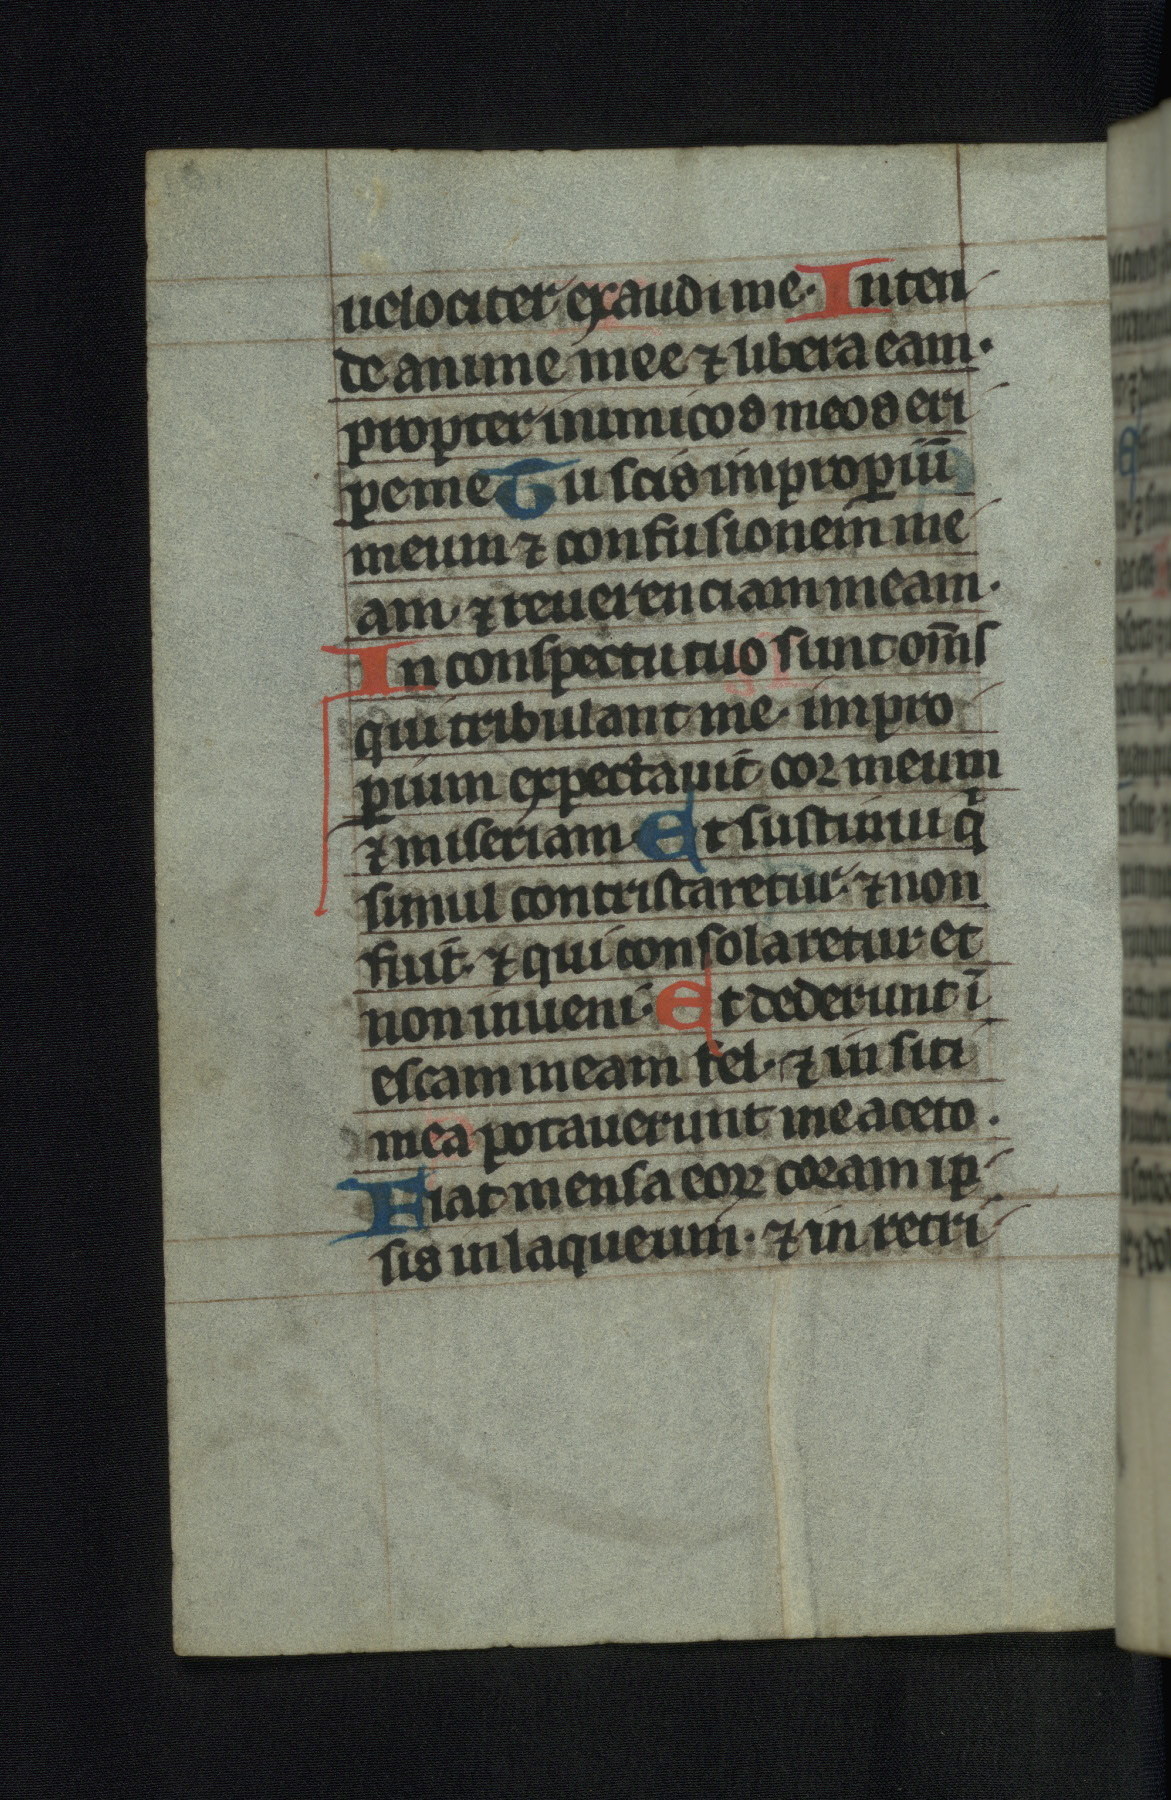 uelociter exaudi me· Inten
de anime mee ⁊ libera eam·
propter inimicos meos eri
pe me Tu scis improperiū
meum ⁊ confusionem me
am· ⁊ reuerenciam meam·
In conspectu tuo sunt om̄s
qui tribulant me· impro
perium expectauit cor meum
⁊ miseriam Et sustinui q̄
simul contristaretur· ⁊ non
fuit· ⁊ qui consolaretur et
non inueni· Et dederunt ī
escam meam fel· ⁊ in siti
mea potauerunt me aceto·
Fiat mensa eoꝝ coram ip
sis in laqueum· ⁊ in retri